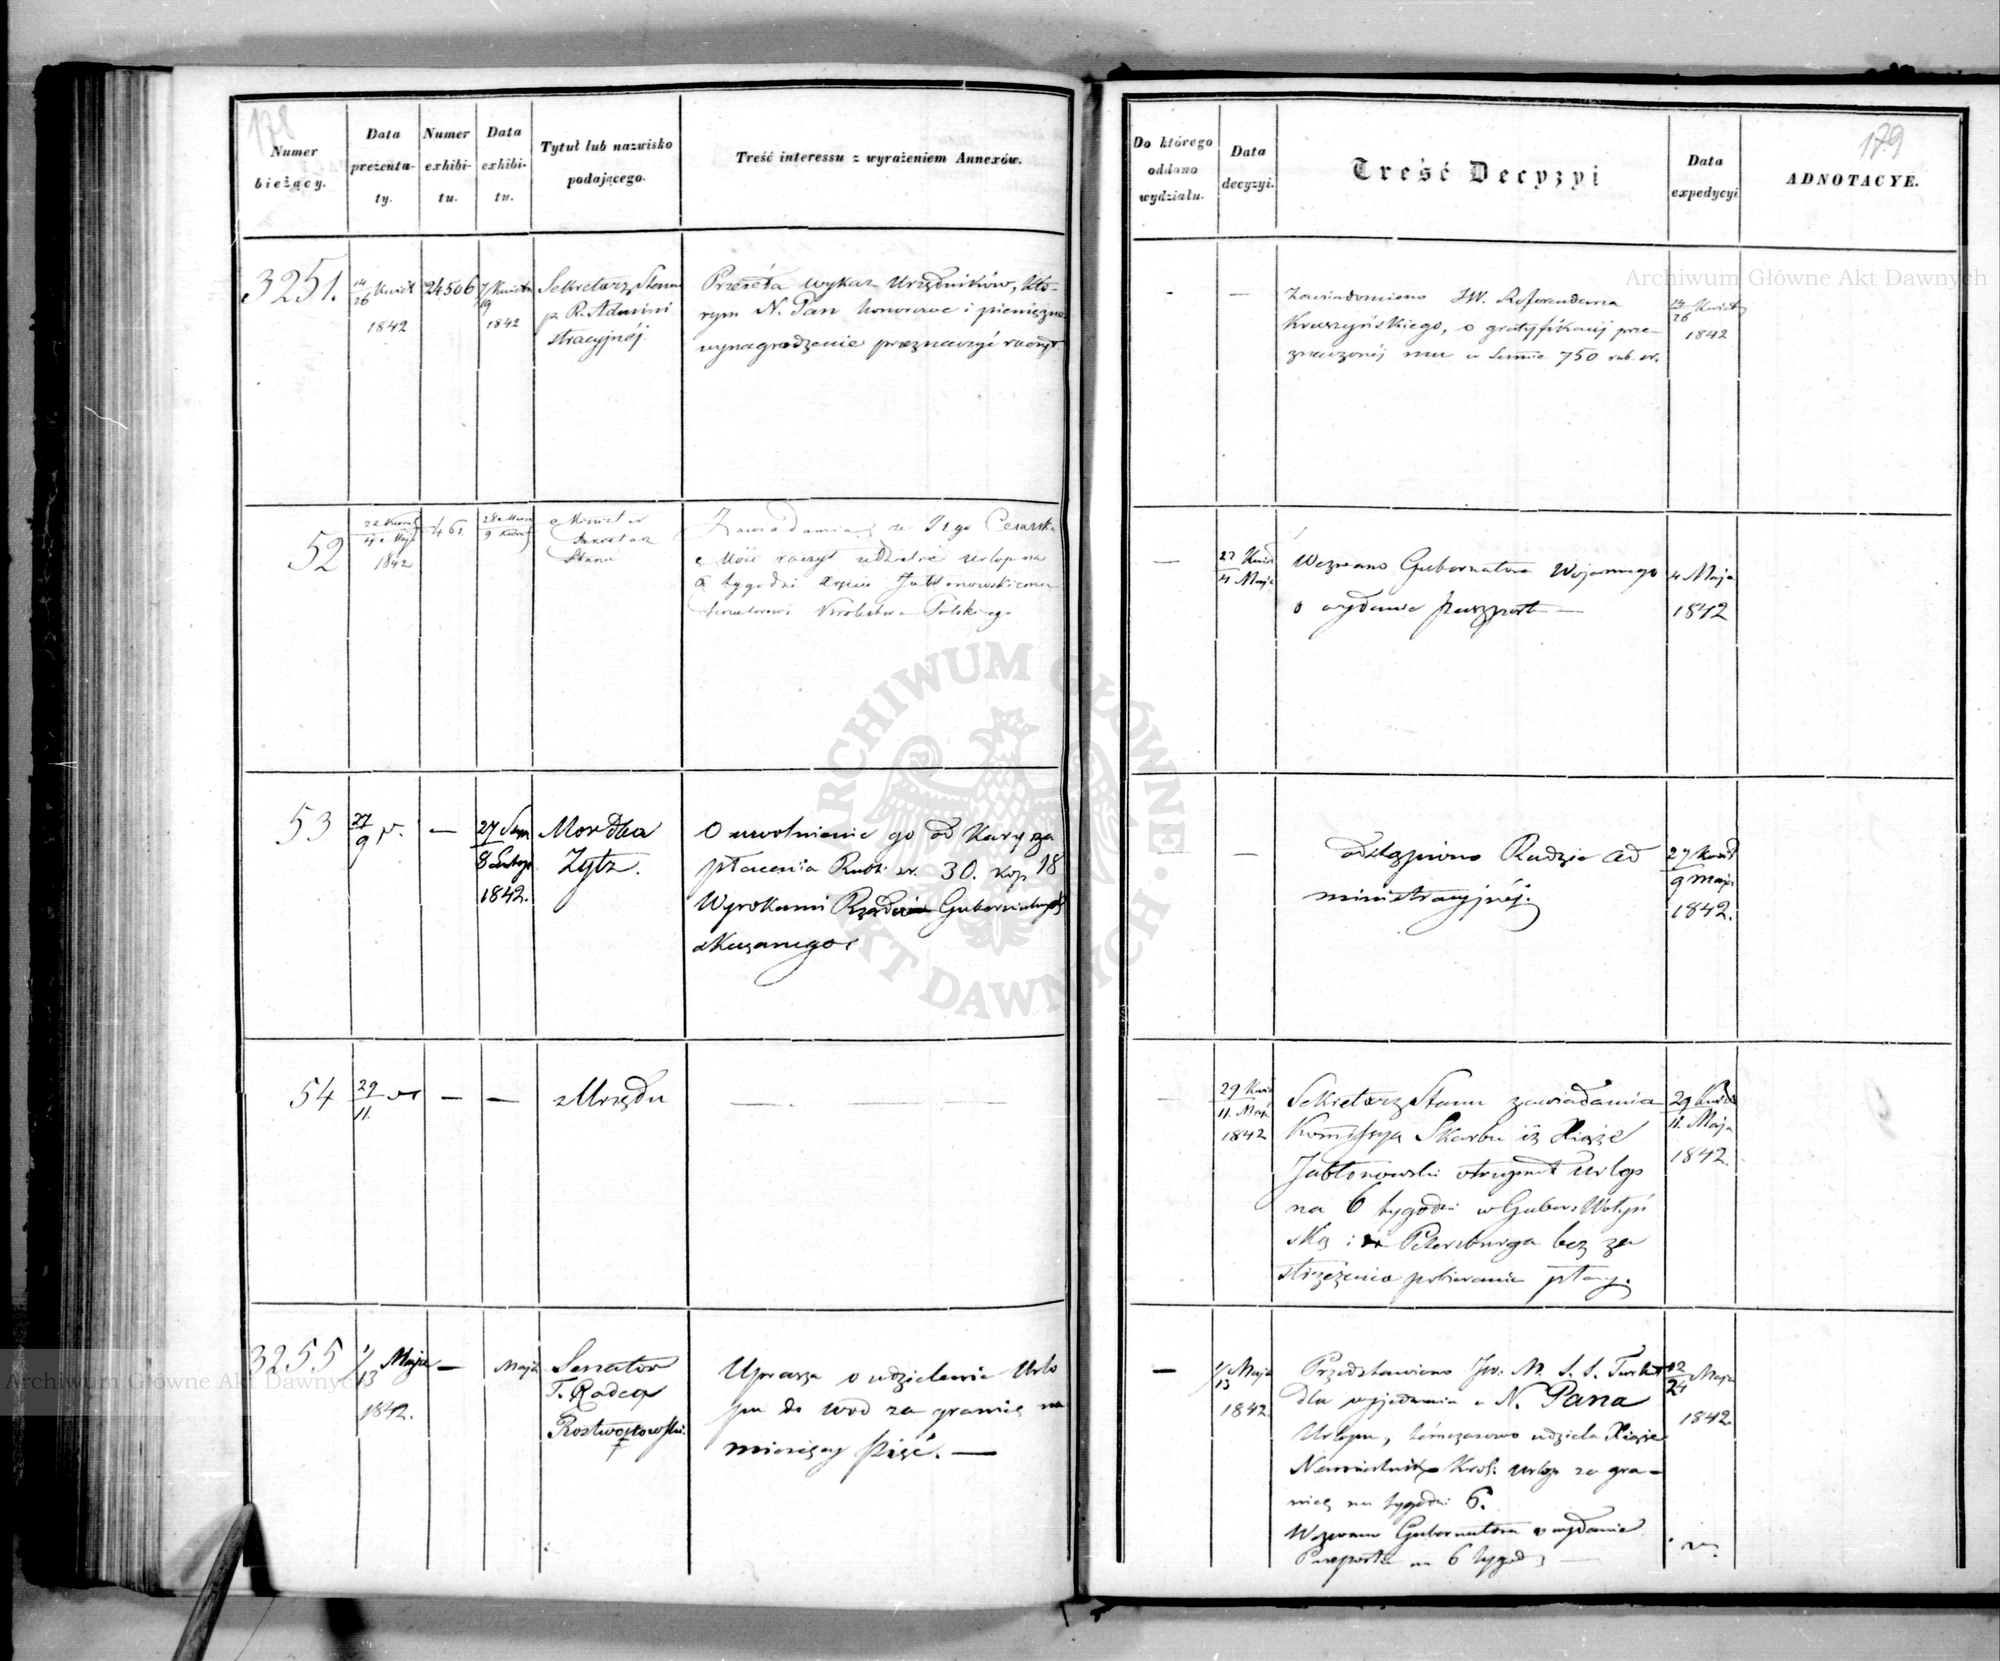 178
Numer bieżący.
Data prezentaty.
Numer exhibitu.
Data exhibitu.
Tytuł lub nazwisko podającego.
Treść interessu z wyrażeniem Annexów.
3251.
14/26 Kwiet
1842
24506
7/19 Kwietn
1842
Sekretarz Stanu
p. R. Admini
stracyjnéj.
Przeséła wykaz Urzędników, któ-
rym N. Pan honorowe i pieniężne
wynagrodzenie przeznaczyć raczył
52
22 Kwiet
4 Maja
1842
461.
28 Marca
9 Kwiet
Minister
Sekretarz
Stanu
Zawiadamia, że Jego Cesarska
Mość raczył udzielić urlop na
6 tygodni Jabłonowskiemu
Senatorowi Królestwa Polskiego
53
27/9
—
27 Stycz
8 Lutego
1842.
Mordka
Zyltz.
O uwolnienie go od kary za
płacenia Rubli sr. 30. kop 18
Wyrokami Rządu Gubernialnego
skazanego
54
29/11.
—
—
z Urzędu
— — —
3255
1/13 Maja
1842.
—
Maja
Senator
T. Radca
Rostworowski.
Uprasza o udzielenie Urlo
pu do wód za granicę na
miesięcy pięć. —
179
Do którego oddano wydziału.
Data decyzyi.
Treść Decyzyi
Data expedycyi
ADNOTACYE.
-
—
Zawiadomiono JW. Referendarza
Kruszyńskiego, o gratyfikacij prze-
znaczonéj mu w Summie 750 rub. sr.
14/26 Kwiet
1842
—
22 Kwiet
4 Maja
Wezwano Gubernatora Wojennego
o wydanie paszportu —
4 Maja
1842
—
—
odstąpiono Radzie Ad
ministracyjnéj.
27 Kwiet
9 maja
1842.
—
29 Kwie
11. Maja
1842
Sekretarz Stanu zawiadamia
Kommissyą Skarbu iż Xiąże
Jabłonowski otrzymał urlop
na 6 tygodni w Guber: Wołyń
ską i Petersburga bez za
strzeżenia pobierania płacy.
29 Kwie
11. Maja
1842.
—
1/13 Maja
1842
Przedstawiono Jw. M. S. S. Turkuł
dla wyjednania u N. Pana
Urlopu, témczasowo udziela Xiąże
Namiestnik Król: urlop za gra-
nicę na tygodni 6.
Wezwano Gubernatora o wydanie
Paszportu na 6 tygodni —
12/24 Maja
1842.
Archiwum Główne Akt Dawnych
Archiwum Główne Akt Dawnych
ARCHIWUM GŁÓWNE • AKT DAWNYCH •